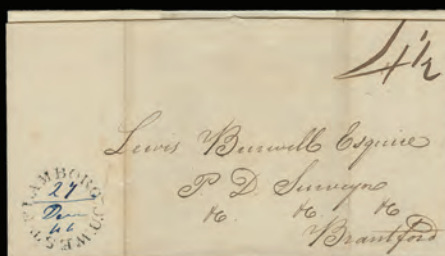 4½
Lewis Burwell Esquire
P. D. Surveyor
&c. &c. &c.
Brantford
WEST FLAMBORO
27
Decr